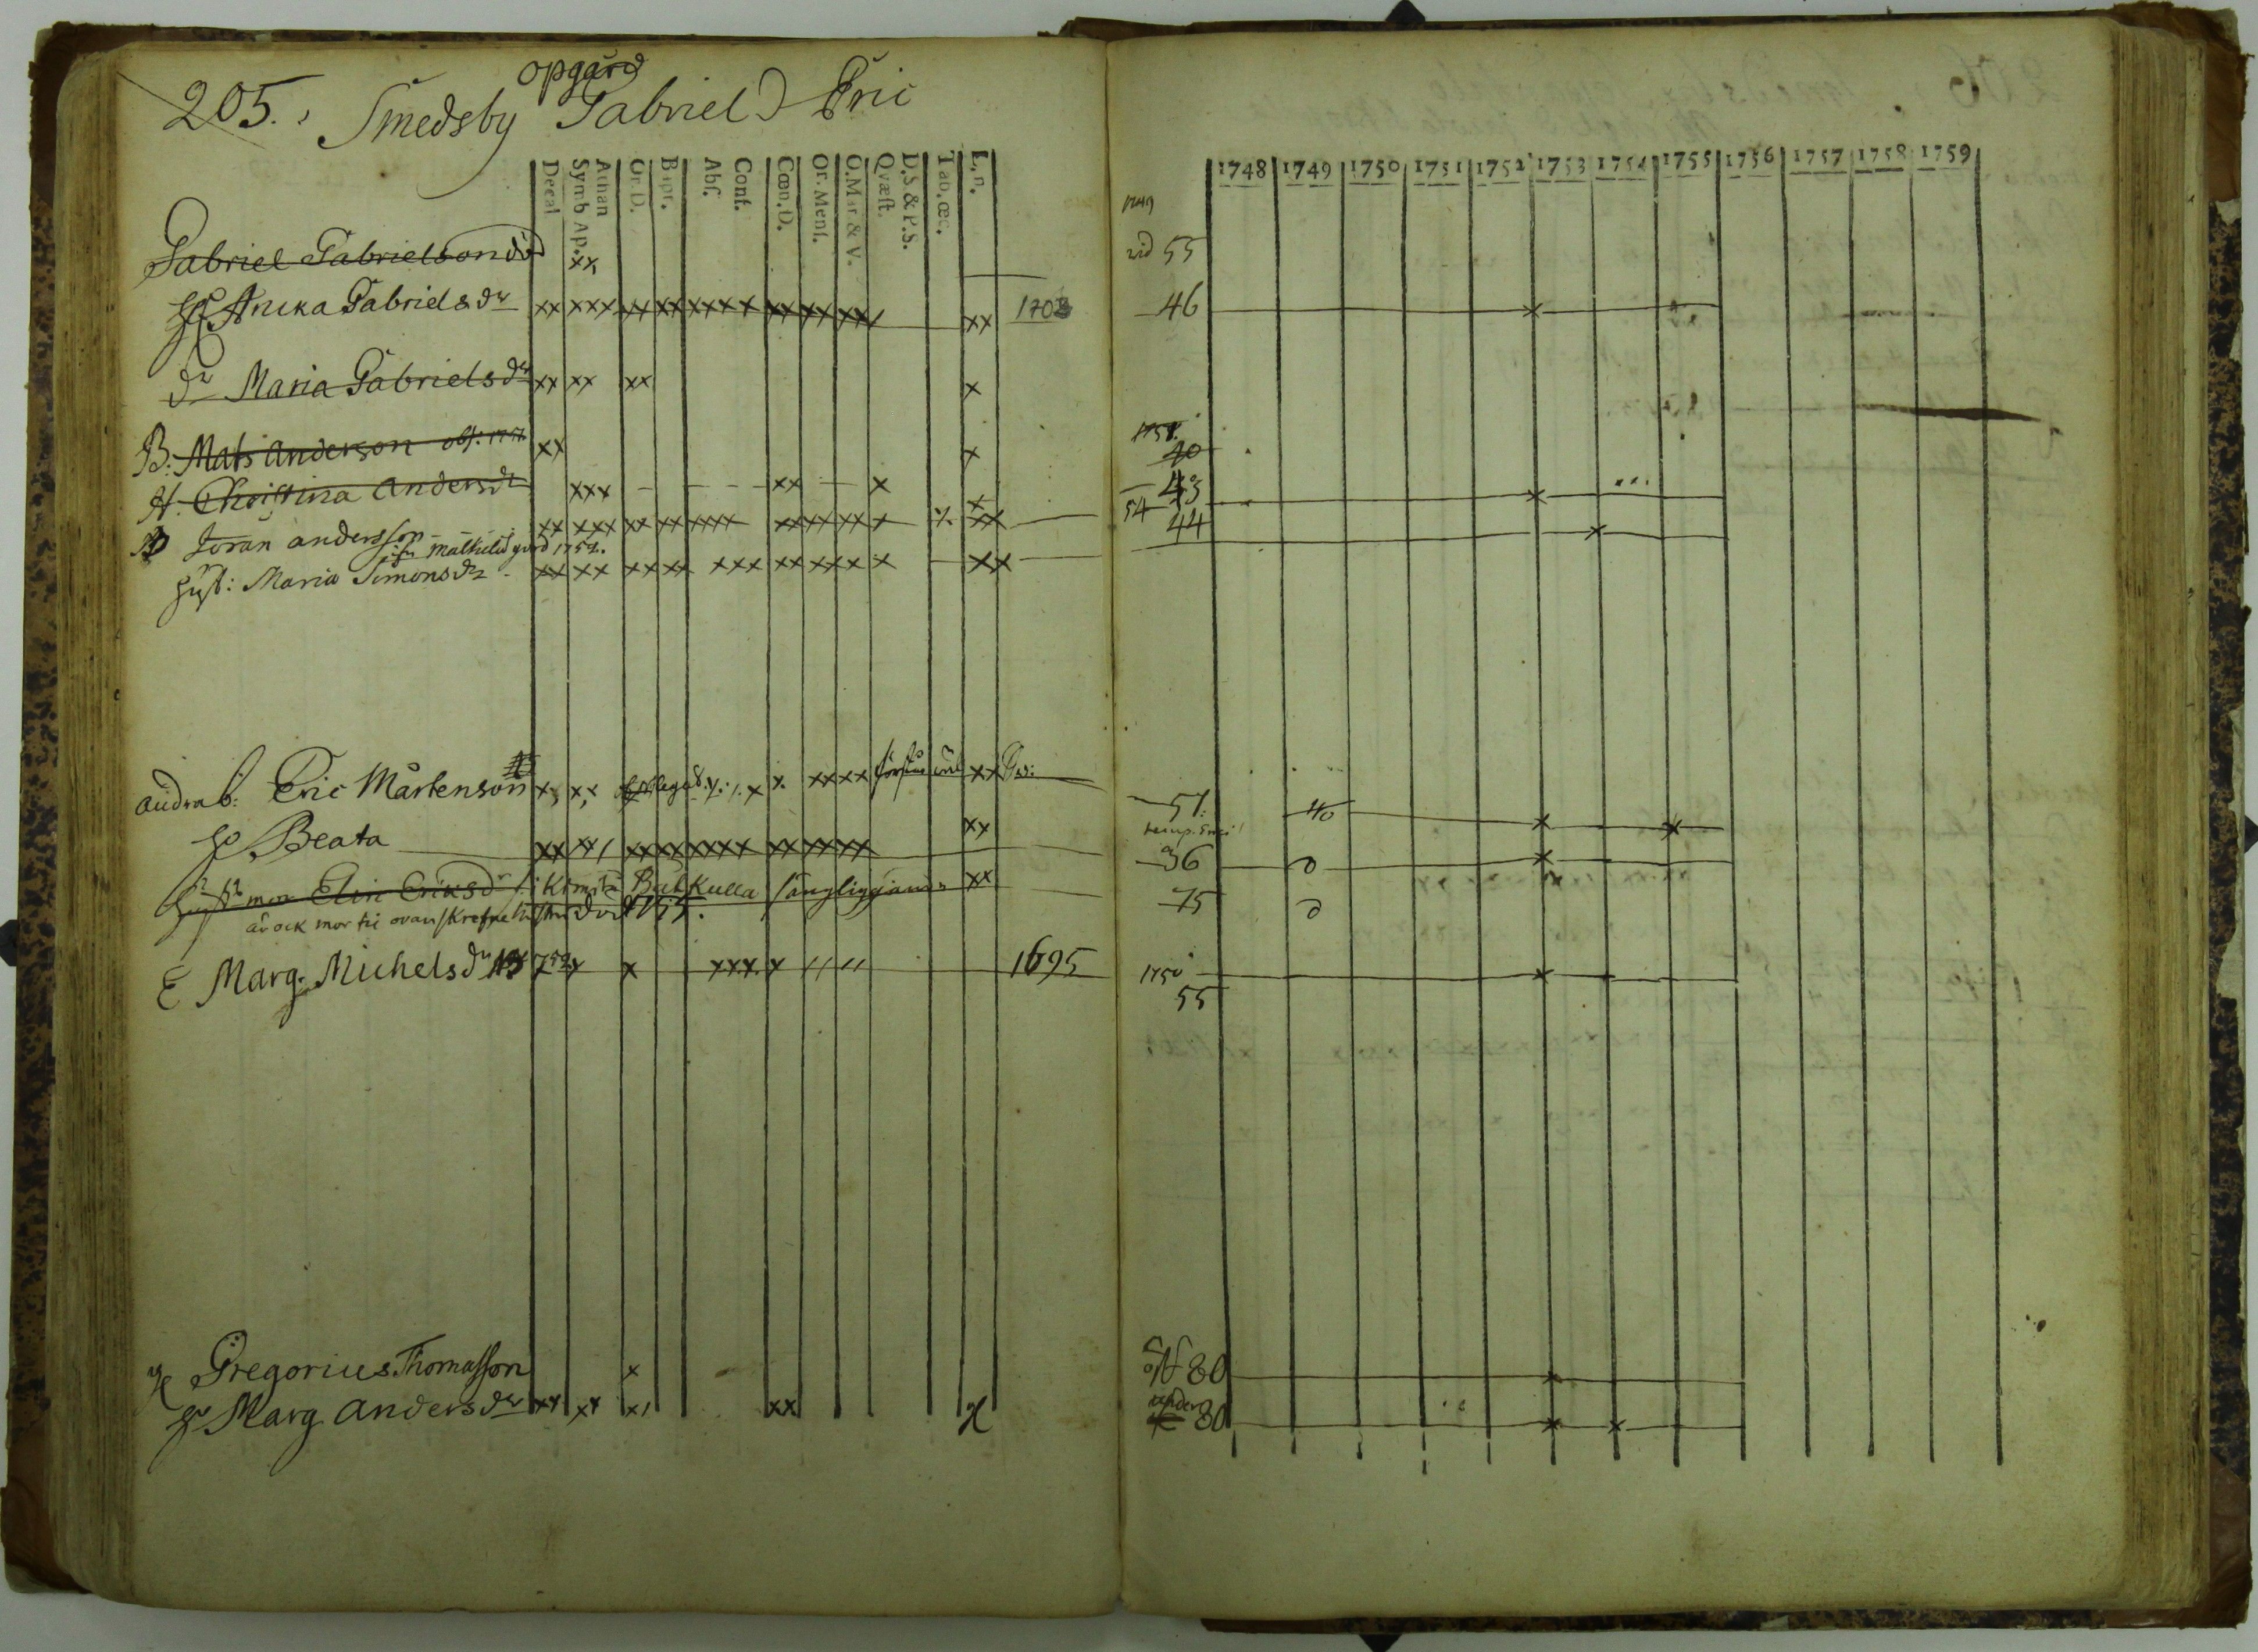 opgård
205. Smedsby Gabriel Eric
Decal
Symb Ap.
Athan
Or. D.
Bapt.
Abs.
Conf.
Cœn. D.
Or. Mens.
O. Mat & V.
Qvæst.
D.S. & P.S.
Tab. œc.
L. n.
1748 1749 1750 1751 1752 1753 1754 1755 1756 1757 1758 1759
1749
Gabriel Gabrielson död xx vid 55
H Anika Gabrielsdr xx xxx xx xx xxxx xx xx xx xx 1703 46 x
dr Maria Gabrielsdr xx xx xx x
B: Mats Anderson xx x 40
H. Christina Andersdr xxx xx x x 43 x
B Jöran Andersson xx xxx xx xx xxxx xx xx xx x xx 54 44 x
Matthelis gård 1752.
hust: Maria Simonsdr xx xx xx xx xxx xx xx xx x xx
andra b: Eric Mårtenson x xx x x xx xx förstår väl xx 51. x x
H Beata xx xx xx xx xxxx xx xx xx xx 36 0 x
mor Elin Eriksdr Bäkkulla sängliggiande xx 75 0
är ock mor til ofvanskrefne hustru död 1755.
E Marg. Michelsdr x xxx x 1695 1750 55 x
Gregorius Thomasson x 80 x
H Marg Andersdr xx xx x xx x 80 x x